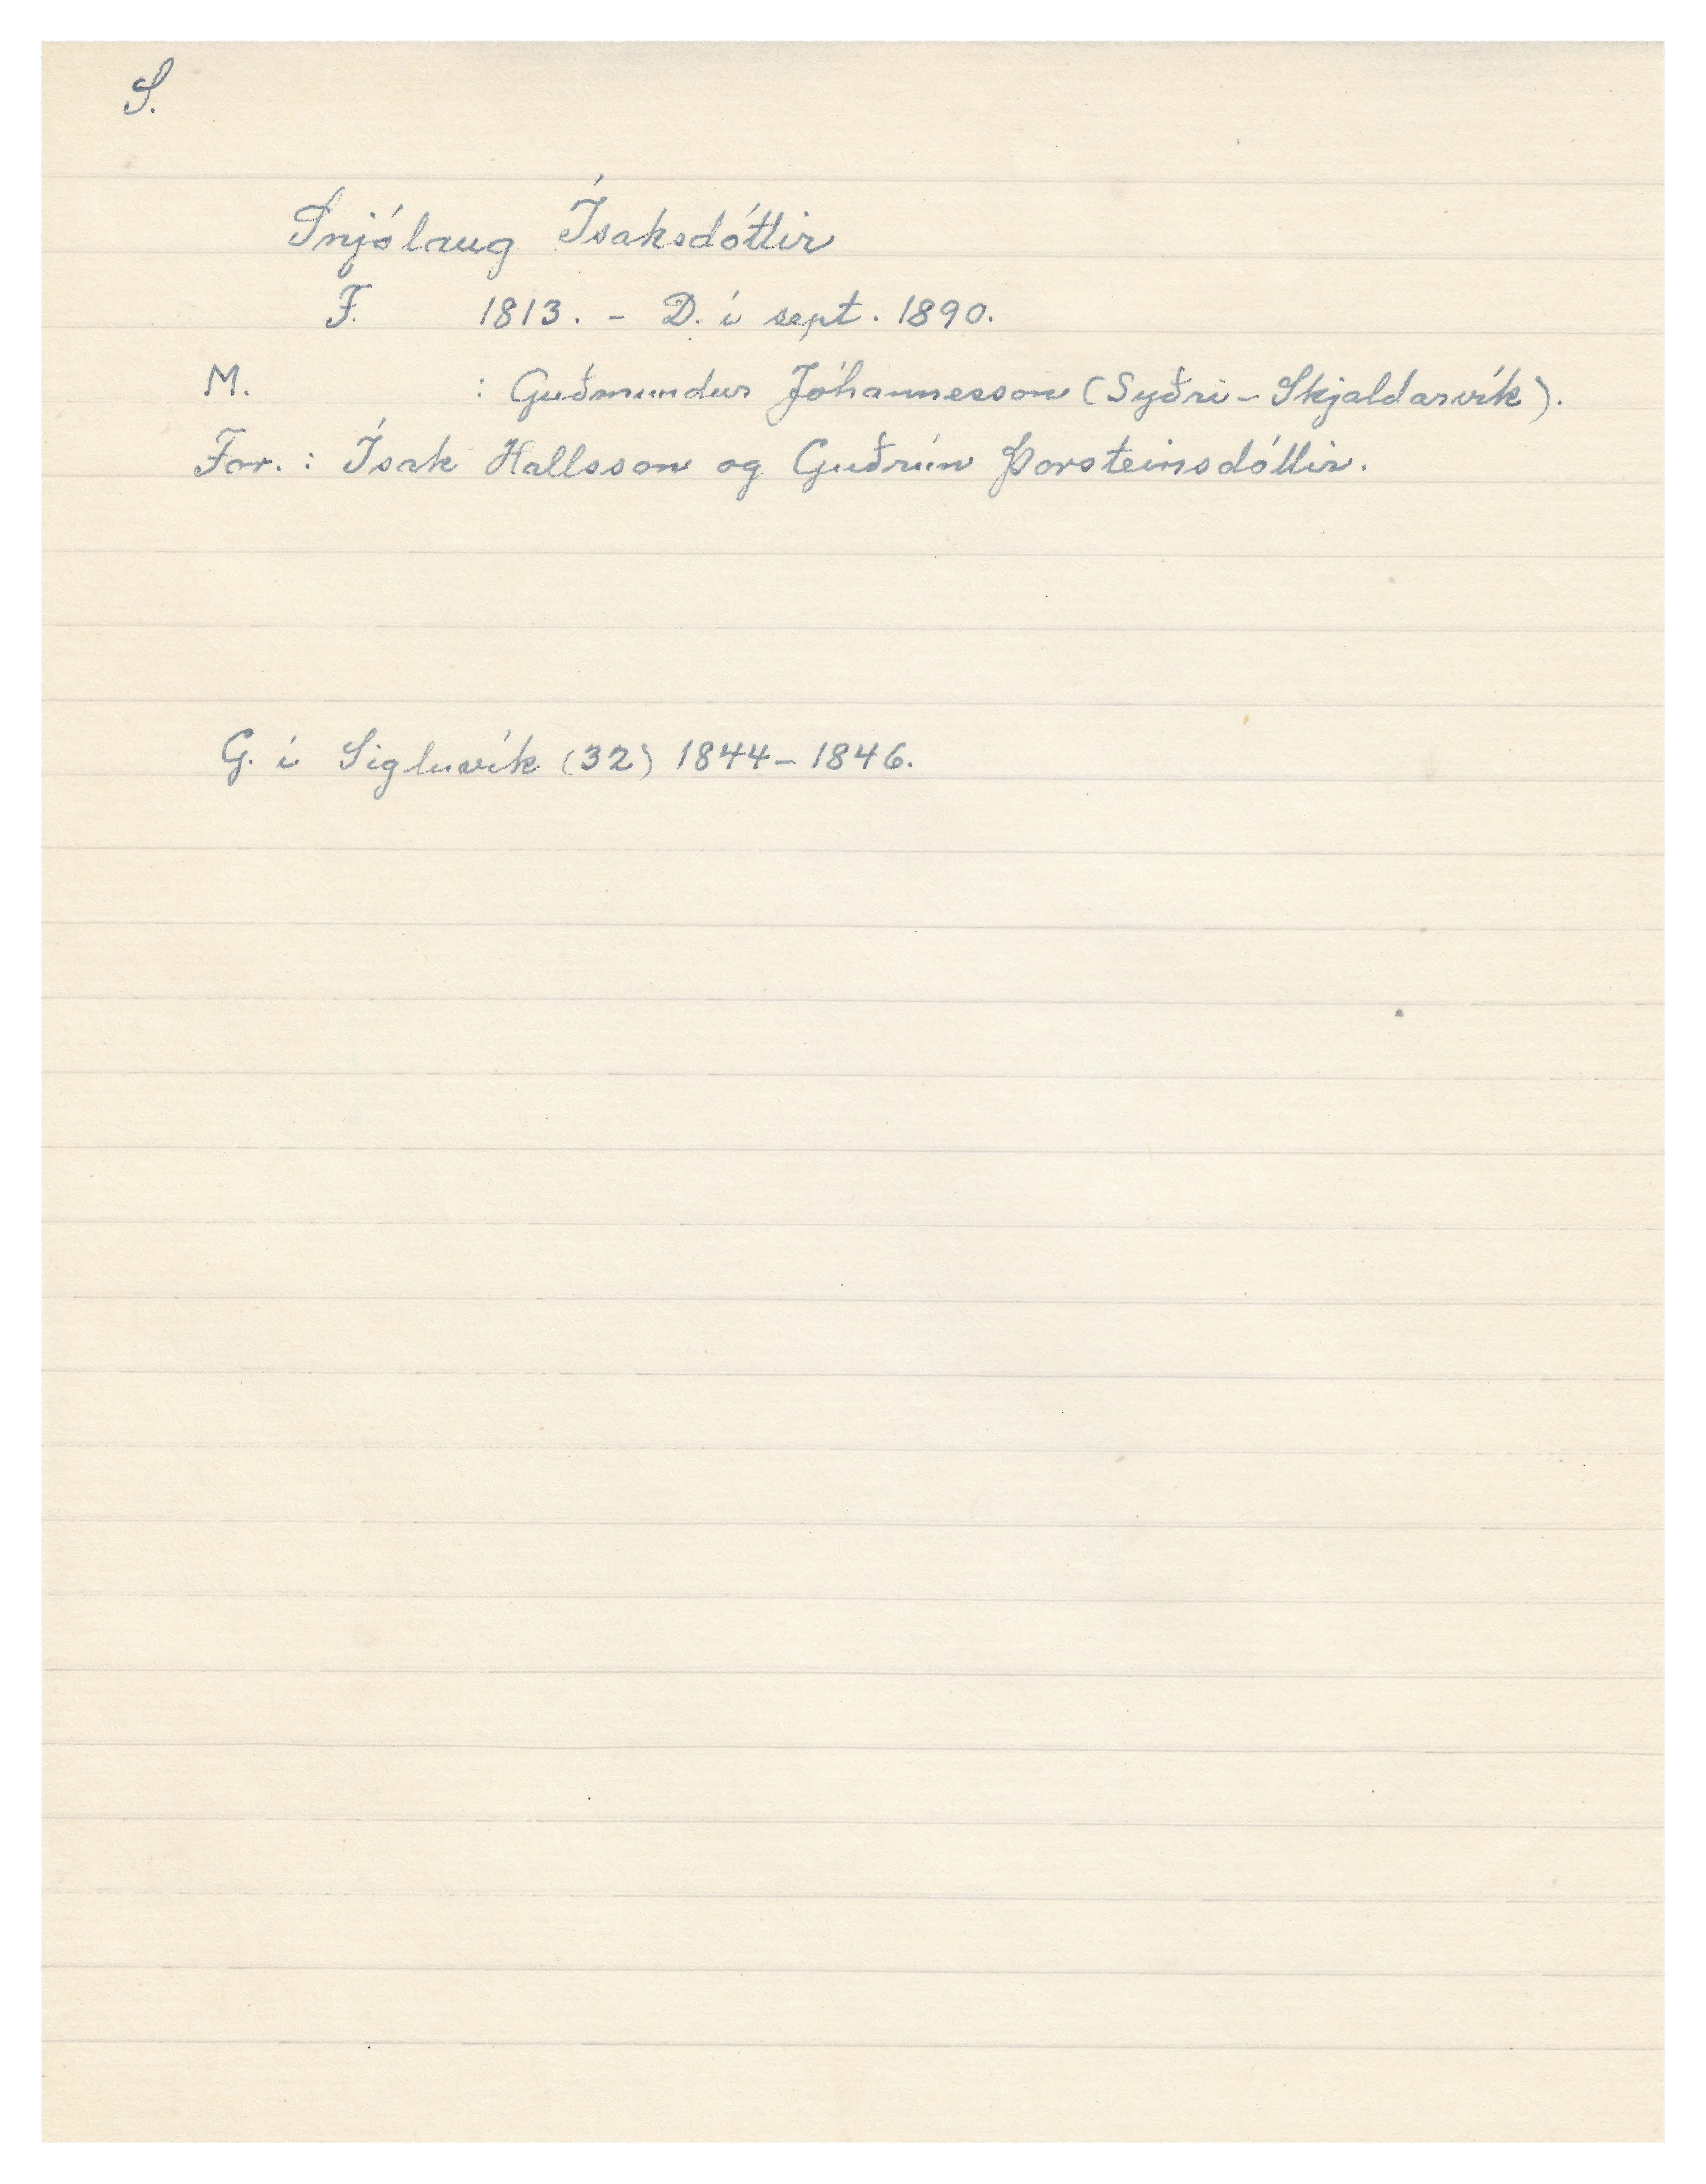 S.
Snjólaug Ísaksdóttir
F. 1813. - D. í sept. 1890.
M. : Guðmundur Jóhannesson (Syðri-Skjaldarvík).
For. : Ísak Hallsson og Guðrún Þorsteinsdóttir.
G. í Sigluvík (32) 1844-1846.